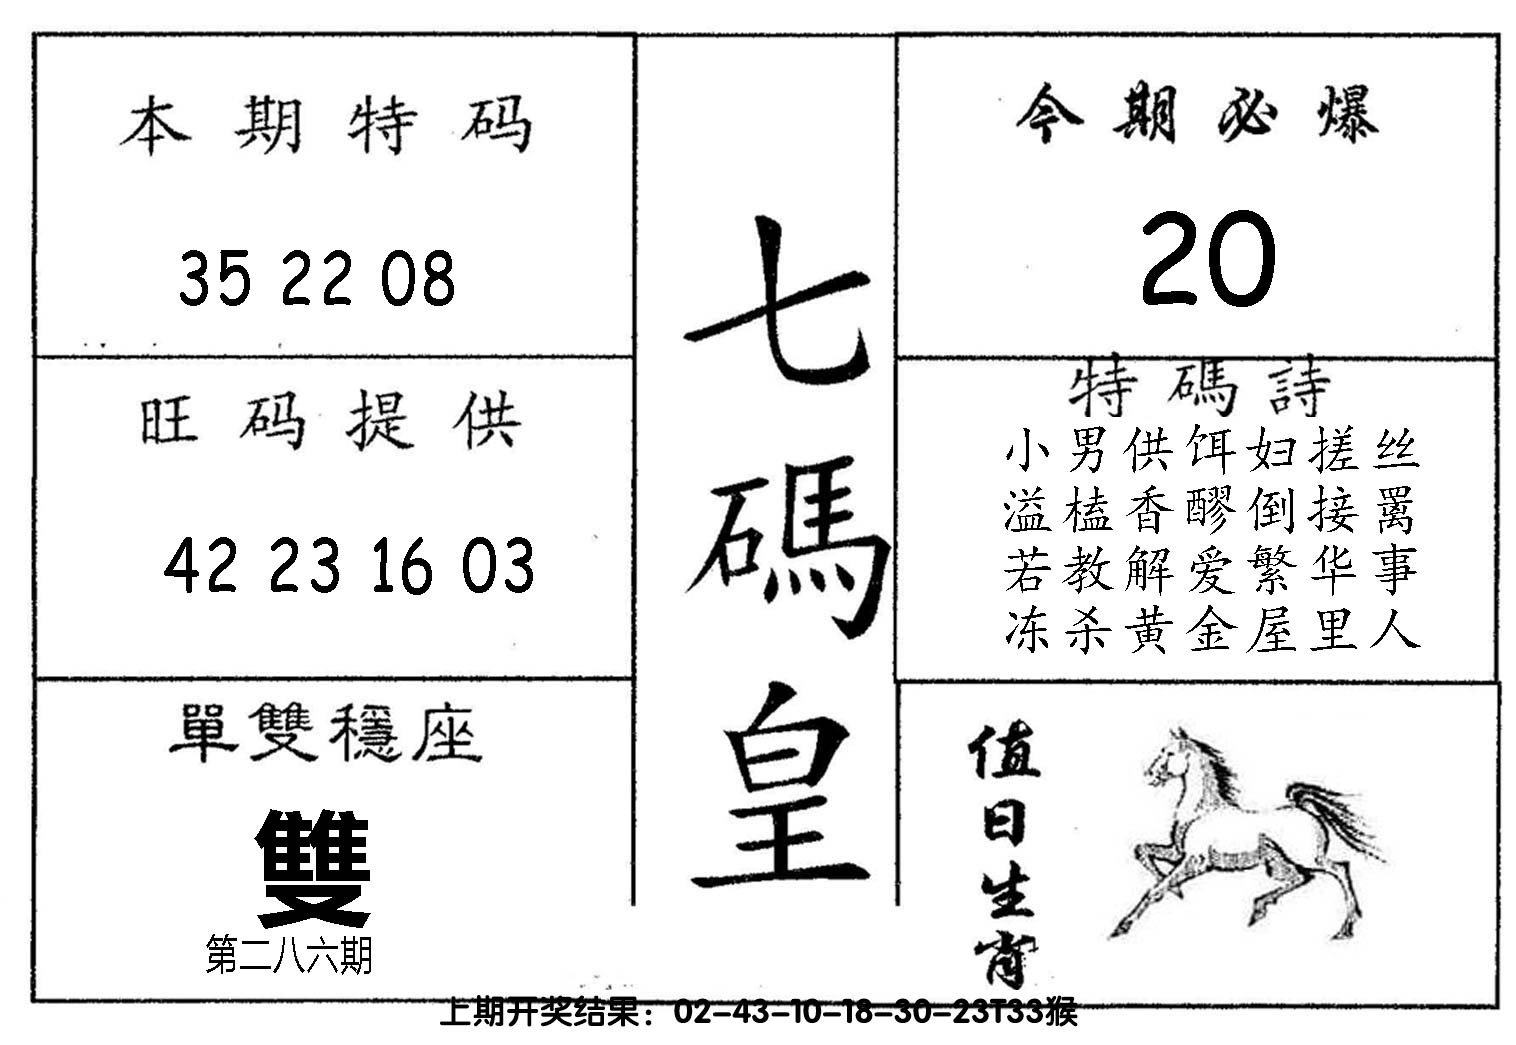 本期特码
35 22 08
旺码提供
42 23 16 03
單雙穩座
雙
第二八六期
七碼皇
今期必爆
20
特碼詩
小男供饵妇搓丝
溢榼香醪倒接䍦
若教解爱繁华事
冻杀黄金屋里人
值日生肖
上期开奖结果：02-43-10-18-30-23T33猴